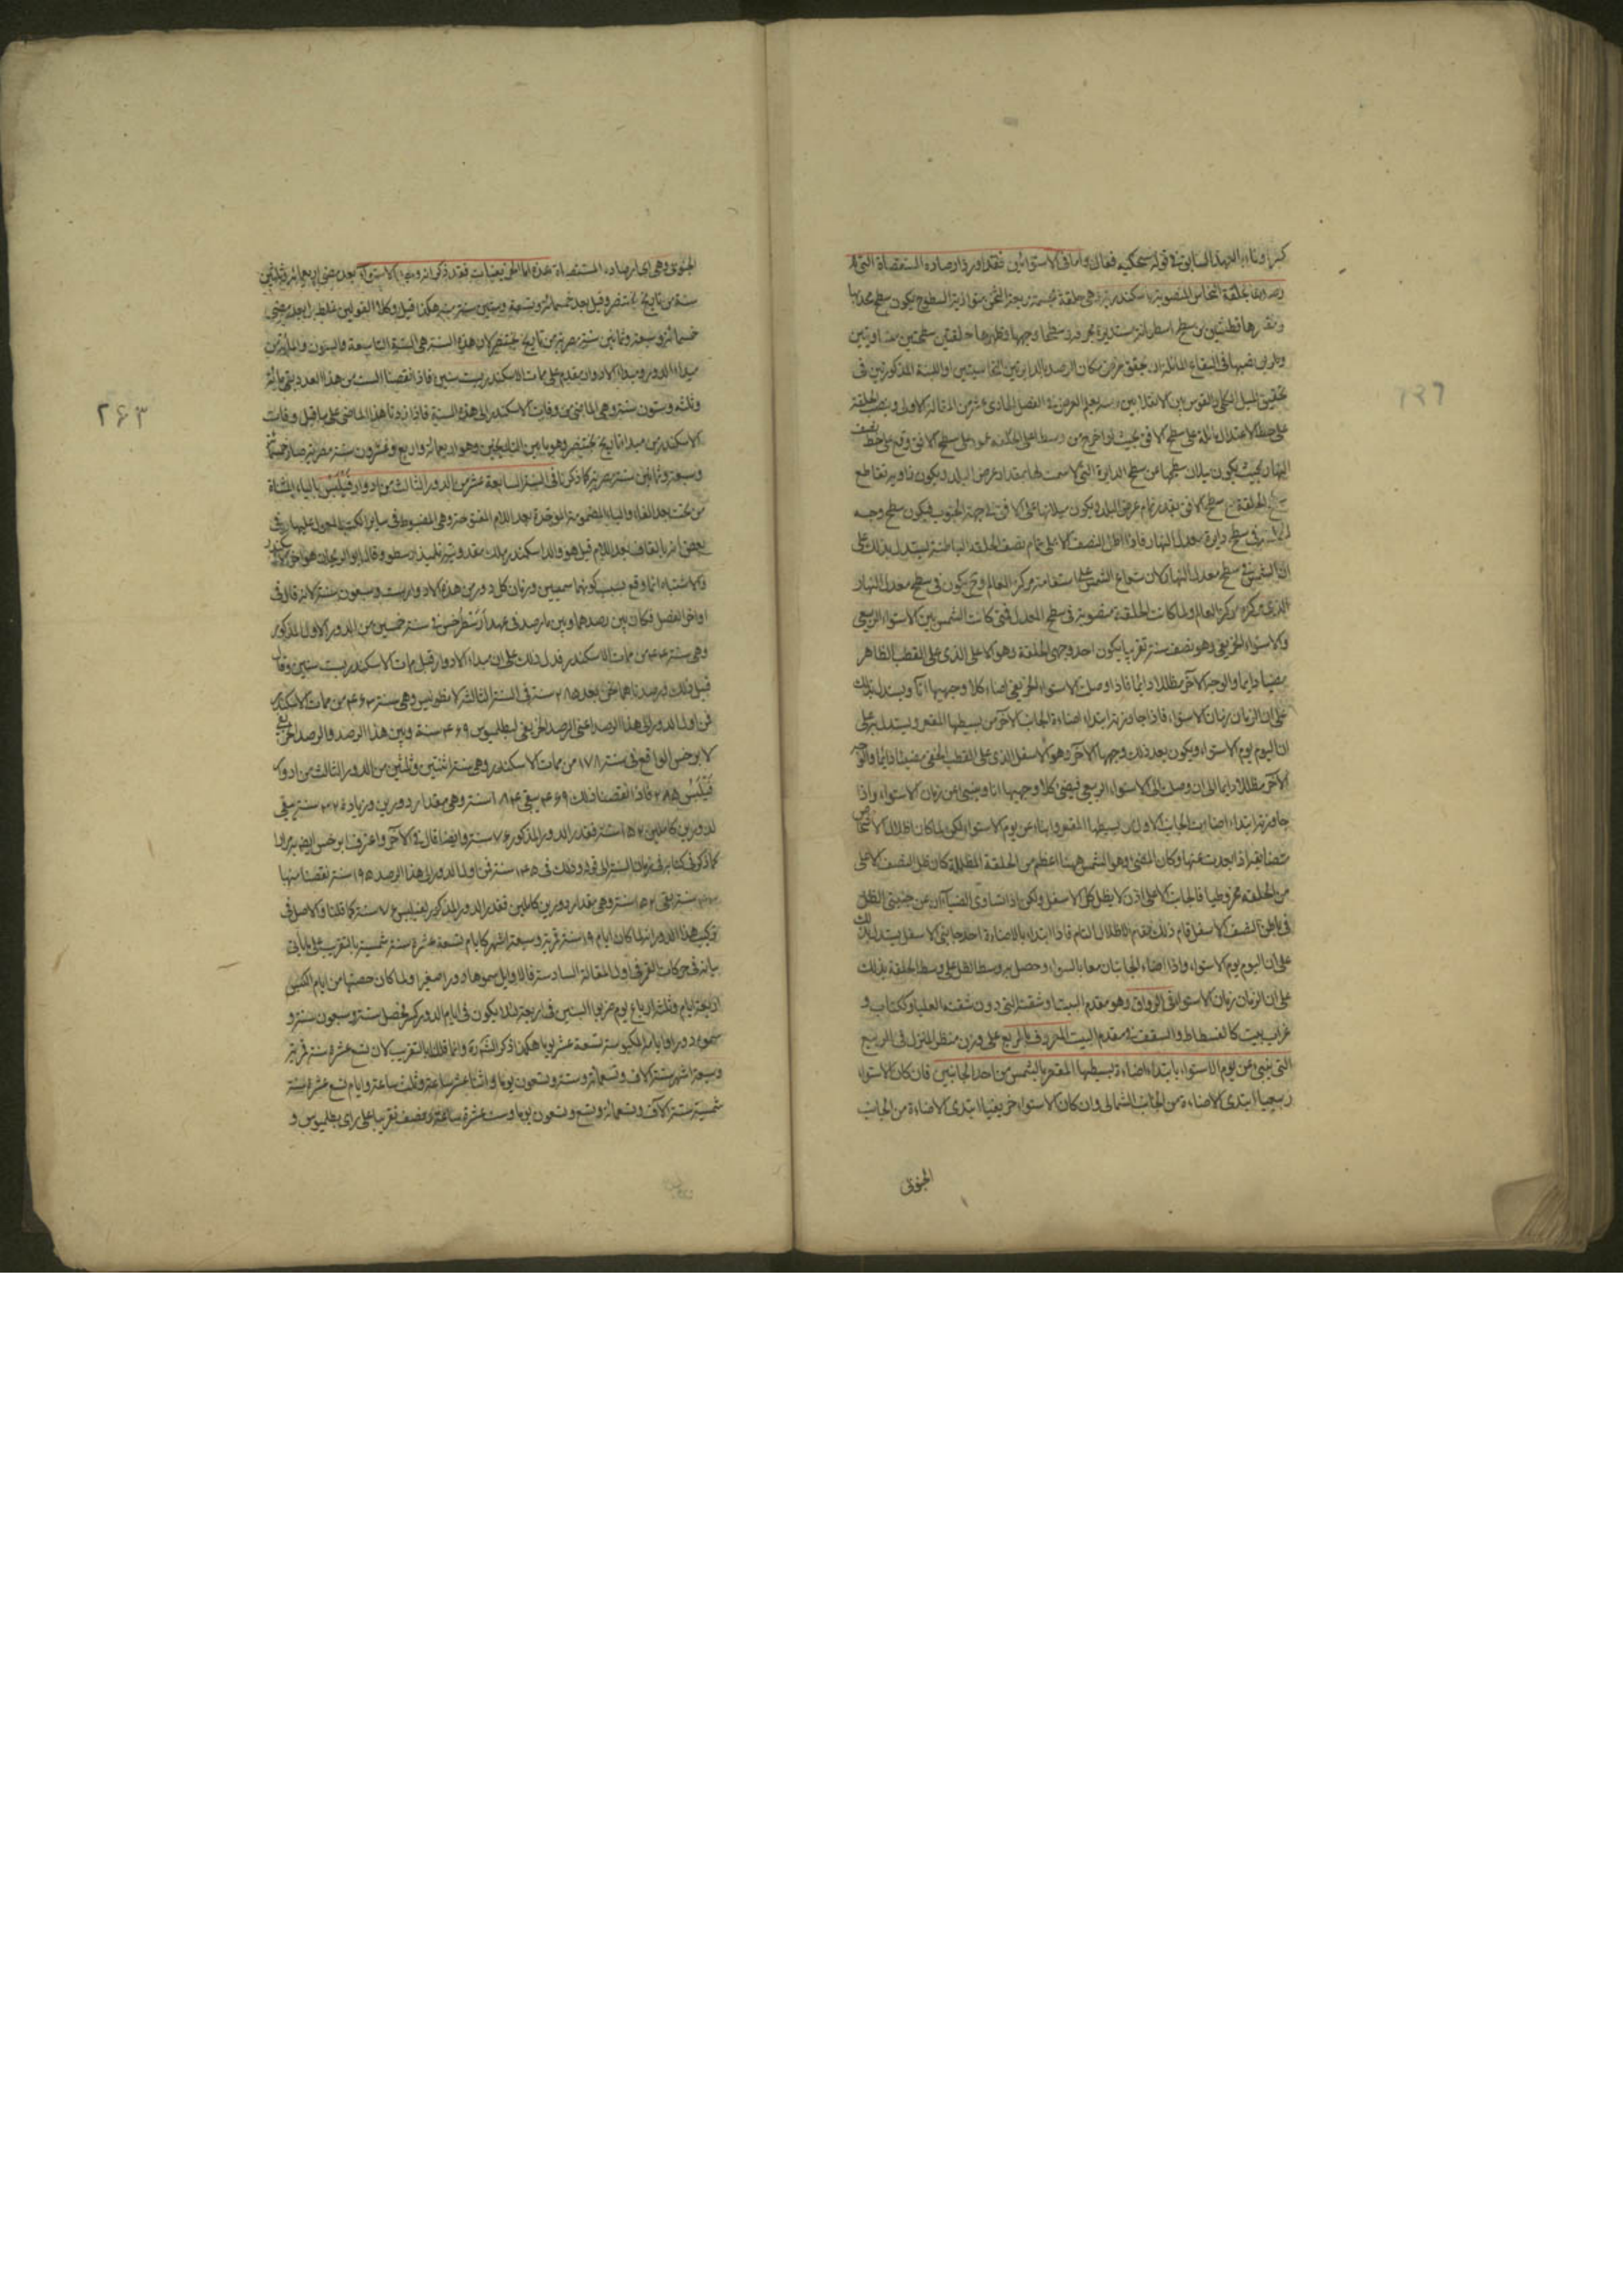 وفاء بالعهد السابق في قوله سنحكيه فقال واما في الاستوائين فقد اورد ارصاده المستقصاة التي
بحلقة النحاس المنصوبة باسكندرية هي حلقة مجسمة مربعة الثخن متوازية السطوح يكون سطح محدبها
ومقعرها قطعتين من سطح اسطوانة مستديرة وسطحا وجهيها وظهرها حلقتين سطحيتين متساويتين
نصبها في البقاع المائلة ان يحقق عرض مكان الرصد بالدايرتين النحاسيتين او اللبنة المذكورتين في
تحقيق الميل الكلي والقوس بين الانقلابين العرض في الفصل الحادي عشر من المقالة الاولى وينصب الحلقة
على خط الاعتدال على سطح الافق بحيث لو اخرج من وسطها عمود على سطح الافق وقع على خط نصف
النهار بحيث يكون ميلان سطحها عن سطح الدايرة التي لا سمت لها بمقدار عرض البلد ويكون زاوية تقاطع
سطح الحلقة مع سطح الافق بقدر تمام عرض البلد ويكون ميلانها على الافق في جهة الجنوب فيكون سطح وجه
الحلقة في سطح دايرة معدل النهار فاذا اظل النصف الاعلى تمام نصف الحلقة الباطنة يستدل بذلك على
ان الشمس في سطح معدل النهار لان شعاع الشمس على استقامة مركز العالم وح يكون في سطح معدل النهار
الذي مركزه مركز العالم ولما كانت الحلقة منصوبة في سطح المعدل فمتى كانت الشمس بين الاستواء الربيعي
والاستواء الخريفي وهو نصف سنة تقريبا يكون احد وجهي الحلقة وهو الاعلى الذي على القطب الظاهر
مضيا دايما والوجه الاخر مظللا دايما فاذا وصلت الاستواء الخريفي اضاء كلا وجهيها انا ويستدل بذلك
على ان الزمان زمان الاستواء فاذا جاوزته ابتداء اضاءة الجانب الاخر من بسيطها المقعر ويستدل به على
ان اليوم يوم الاستواء ويكون بعد ذلك وجهها الاخر وهو الاسفل الذي على القطب الخفي مضيئا دايما والوجه
الاخر مظللا دايما الى ان وصلت الى الاستواء الربيعي فيضئ كلا وجهيها انا وينبئ عن زمان الاستواء واذا
جاوزته ابتداء اضاءت الجانب الاول من بسيطها المقعر وانباء عن يوم الاستواء لكن لما كان اظلال الاشخاص
متضايقة اذا بعدت عنها وكان المضئ وهو الشمس ههنا اعظم من الحلقة المظللة كان ظل النصف الاعلى
من الحلقة مخروطيا فالجانب الاعلى اذن لا يظل كل الاسفل ولكن اذا تساوى الضياآن عن جنبتي الظل
في باطن النصف الاسفل قام ذلك مقام الاظلال التام فاذا ابتداء بالاضاءة احد جانبي الاسفل يستدل بذلك
على ان اليوم يوم الاستواء واذا اضاء الجانبان معا بالسواء وحصل وسط الظل على وسط الحلقة بذلك
على ان الزمان زمان الاستواء في الرواق وهو مقدم البيت او شقته التي دون شقته العليا وككتاب و
غراب بيت كالفسطاط والسقف في مقدم البيت المعروف بالمربع على وزن المنزل في الربيع
التي ينبئ عن يوم الاستواء بابتداء اضاءة بسيطها المقعر بالشمس من احد الجانبين فان كان الاستواء
ربيعيا ابتدى الاضاءة من الجانب الشمالي وان كان الاستواء خريفيا ابتدى الاضاءة من الجانب
الجنوبي
٢٤٣
الجنوبي وهي اي ارصاده المستقصاة هذه اما الخريفيات فقد ذكر انه وجد الاستواء بعد مضي اربعمائة وثلثين
سنة من تاريخ بختنصر وقيل بعد خمسمائة وتسعة وستين سنة هكذا قيل وكلا القولين غلط بل بعد مضي
خمسمائة وسبعة وثمانين سنة مصرية من تاريخ بختنصر لان هذه السنة هي السنة التاسعة والستون والمائة من
مبداء الدور ومبداء الادوار مقدم على ممات الاسكندر بست سنين فاذا نقصنا الست من هذا العدد بقي مائة
وثلثة وستون سنة وهي الماضي من وفات الاسكندر الى هذه السنة فاذا زدنا هذا الماضي على ما قبل وفات
الاسكندر من مبداء تاريخ بختنصر وهو ما بين التاريخين وهو اربعمائة واربع وعشرون سنة مصرية صار خمسمائة
وسبعة وثمانين سنة مصرية كما ذكرنا في السنة السابعة عشر من الدور الثالث من ادوار فيلبس بالياء المثناة
من تحت بعد الفاء والباء المضمومة الموحدة بعد اللام المفتوحة وهي المضبوط في ساير الكتب المعول عليها وفي
بعض اخر بالقاف بعد اللام قيل هو والد اسكندر ملك مقدونية تلميذ ارسطو وقال ابو الريحان هو اخو الاسكندر
والاشتباه انما وقع بسبب كونهما سميين وزمان كل دور من هذه الادوار ست وسبعون سنة لانه قال في
اواخر الفصل فكان بين رصدهما وبين ما رصد في عهد ارسطرخس في سنة خمسين من الدور الاول المذكور
وهي سنة ٤٤ من ممات الاسكندر فدل ذلك على ان مبداء الادوار قبل ممات الاسكندر بست سنين وقال
قبل ذلك ورصدناهما نحن بعد ٢٨٥ سنة في السنة الثالثة لانطونينس وهي سنة ٤٦٣ من ممات الاسكندر
فمن اول الدور الى هذا الرصد اعني الرصد الخريفي لبطلميوس ٤٦٩ سنة وبين هذا الرصد والرصد الخريفي
لابرخس الواقع في سنة ١٧٨ من ممات الاسكندر وهي سنة اثنتين وثلثين من الدور الثالث من ادوار
فيلبس ٢٨٥ فاذا نقصنا ذلك من ٤٦٩ بقي ١٨٤ سنة وهي مقدار دورين وزيادة ٣٢ سنة يبقى
لدورين كاملين ١٥٢ سنة فقدر الدور المذكور ٧٦ سنة وايضا قال في الاخر واعترف ابرخس
كما ذكر في كتابه في زمان السنة
سنة بقي ١٥٢ سنة وهي مقدار دورين كاملين فقدر الدور المذكور لفيلبس ٧٦ سنة كما قلنا والاصل في
تركيب هذا الدور انه لما كان ايام ١٩ سنة قمرية وسبعة اشهر كايام تسعة عشرة سنة شمسية بالتقريب على ما ياتي
بيانه في حركات القمر في اول المقالة السادسة فالاوايل سموها دورا صغيرا ولما كان حصتها من ايام الكبس
اربعة ايام وثلثة ارباع يوم ضربوا السنين في اربعة لئلا يكون في ايام الدور كسر فحصل ستة وسبعون سنة و
سموه دورا وايامه المكبوسة تسعة عشر يوما هكذا ذكر الشهرة وانما قلنا بالتقريب لان تسع عشرة سنة قمرية
وسبعة اشهر ستة الاف وتسعمائة وستة وتسعون يوما واثنا عشر ساعة وثلث ساعة وايام تسع عشرة سنة
شمسية ستة الاف وتسعمائة وتسع وتسعون يوما وست عشرة ساعة ونصف تقريبا على راي بطلميوس و